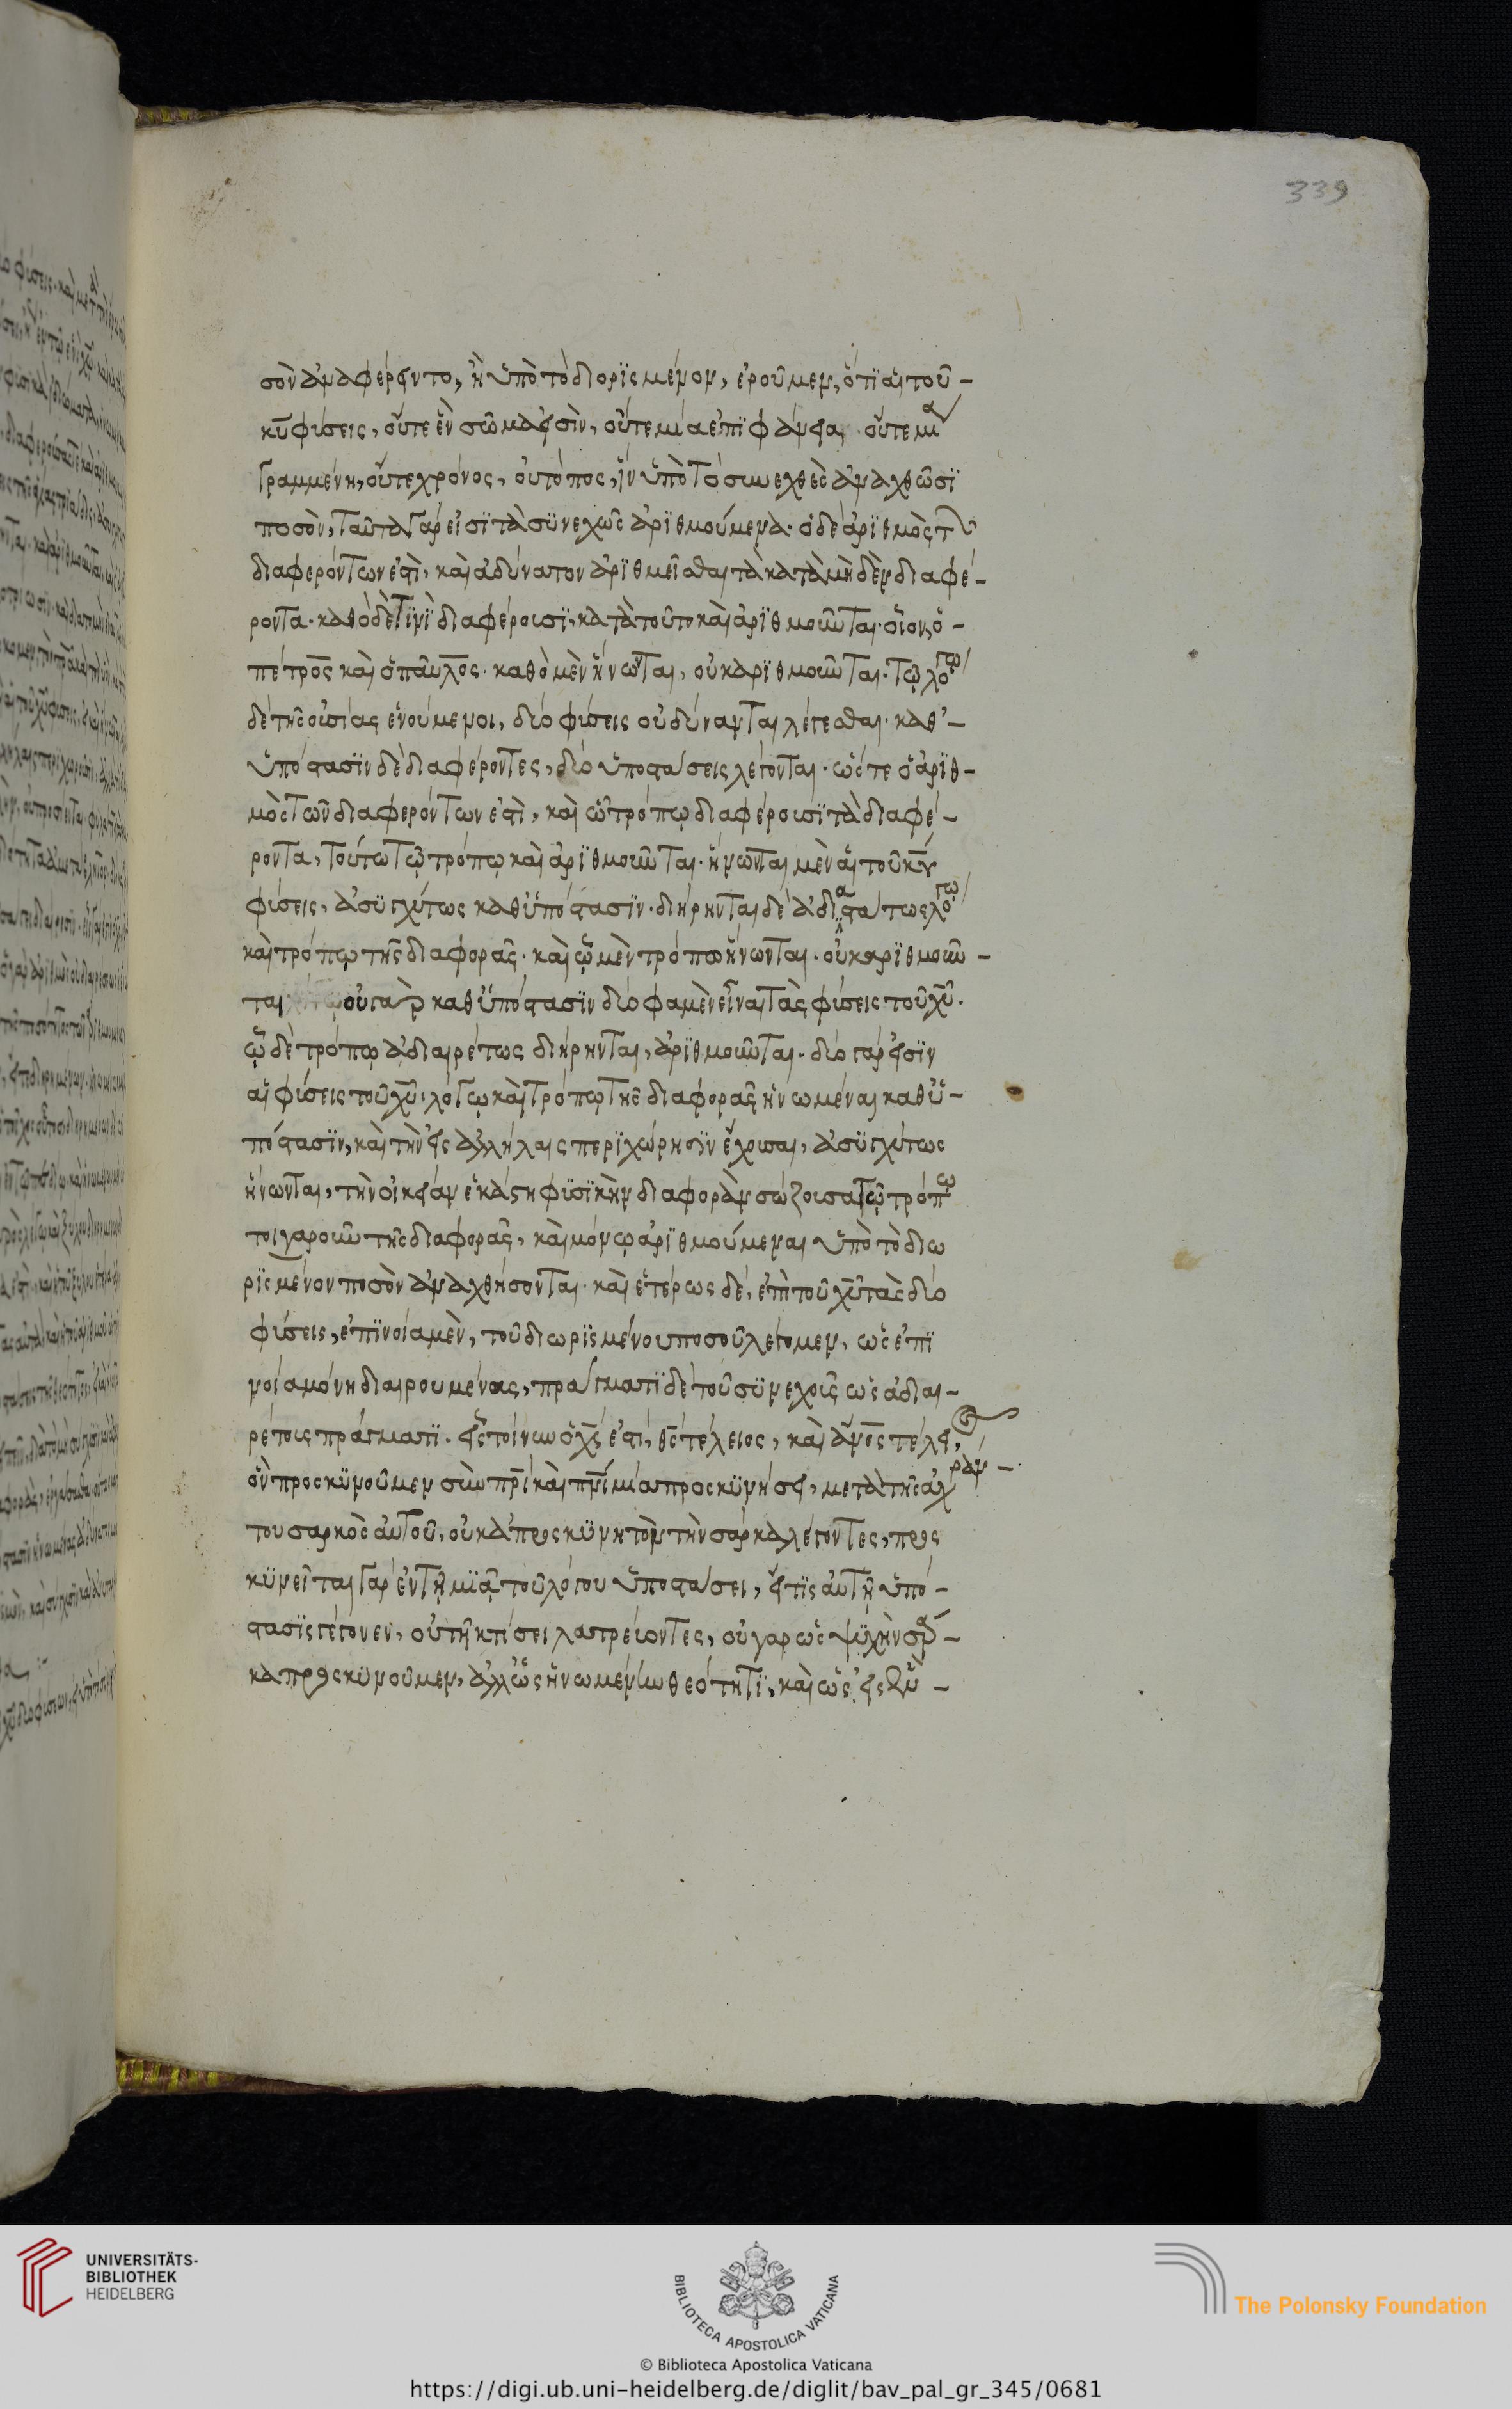 339
σὸν ἀναφέροιντο, ἢ ὑπὸ τὸ διορϊσμένον, ἐροῦμεν, ὅτϊ αἱ τοῦ –
κῡ φύσεις, οὔτε ἓν σῶμα εἰσὶν, οὔτε μία ἐπϊφάνεια, οὔτε μία
γραμμένη, οὔτε χρόνος, οὐ τόπος, ἵν ὑπὸ τὸ συνεχὲς ἀναχθῶσϊ
ποσὸν, ταῦτα γάρ εἰσϊ τὰ σϋνεχῶς ἀρϊθμούμενα· ὁ δὲ ἀρϊθμὸς τῶν
διαφερόντων ἐστὶ, καὶ ἀδύνατον ἀρϊθμεῖσθαι τὰ κατὰ μηδὲν διαφέ–
ροντα· καθὸ δέ τϊνϊ διαφέρουσϊ, κατὰ τοῦτο καὶ ἀρϊθμοῦνται· οἷον, ὁ –
πέτρος καὶ ὁ παῦλος· καθὸ μὲν ἥνωνται, οὐκ αρϊθμοῦνται· τῷ λόγω
δὲ τῆς οὐσίας ἑνούμενοι, δύο φύσεις οὐ δύνανται λέγεσθαι· καθ’ –
ὑπόστασϊν δὲ διαφέροντες, δύο ὑποστάσεις λέγονται· ὥστε ὁ ἀρϊθ–
μὸς τῶν διαφερόντων ἐστὶ, καὶ ὧ τρόπῳ διαφέρουσϊ τὰ διαφέ–
ροντα, τούτω τῷ τρόπῳ καὶ ἀρϊθμοῦνται· ἥνωνται μὲν αἱ τοῦ κῡ
φύσεις, ἀσϋγχύτως καθ ὑπόστασϊν· διήρηνται δὲ ἀδιαστάτως λόγω
καὶ τρόπῳ τῆς διαφορᾶς· καὶ ᾧ μὲν τρόπω ἥνωνται· οὐκ αρϊθμοῦν–
ται οὐ γὰρ καθ ὑπόστασϊν δύο φαμὲν εἶναι τὰς φύσεις τοῦ χῡ.
ᾧ δὲ τρόπῳ ἀδιαιρέτως διήρηνται, ἀρϊθμοῦνται· δύο γάρ εἰσϊν
αἱ φύσεις τοῦ χῡ· λόγῳ καὶ τρόπῳ τῆς διαφορᾶς ἡνωμέναι καθ ὑ–
πόστασϊν, καὶ τὴν εἰς ἀλλήλαις περϊχώρησϊν ἔχουσαι, ἀσϋγχύτως
ἥνωνται, τὴν οἰκείαν ἑκάστη φϋσϊκὴν διαφορὰν σώζουσα τῷ τρόπω
τοιγαροῦν τῆς διαφορᾶς, καὶ μόνῳ ἀρϊθμούμεναι ὑπὸ τὸ διω
ρϊσμένον ποσὸν ἀναχθήσονται· καὶ ἑτέρως δὲ, ἐπὶ τοῦ χῡ τὰς δύο
φύσεις, ἐπϊνοία μὲν, τοῦ διωρϊσμένου ποσοῦ λέγομεν, ὡς ἐπϊ
νοία μόνη διαιρουμένας, πράγματϊ δὲ τοῦ σϋνεχοῦς ὡς ἀδιαι–
ρέτους πράγματϊ. εἷς τοίνυν ὁ χς ἐστί, θς τέλειος, καὶ ἄνος τέλειος,
ὃν προσκϋνοῦμεν σὺν πρὶ καὶ πνὶ μία προσκϋνήσει, μετὰ τῆς ἀχράν–
του σαρκὸς αὐτοῦ, οὐκ ἀπροσκϋνητὸν τὴν σάρκα λέγοντες, προς
κϋνεῖται γὰρ ἐν τῇ μϊᾷ τοῦ λόγου ὑποστάσει, ἥτϊς αὐτῇ ὑπό–
στασϊς γέγονεν, οὐ τῇ κτίσει λατρεύοντες, οὐ γαρ ὡς ψϋχὴν σάρ–
κα προσκϋνοῦμεν, ἀλλ ὡς ἡνωμένην θεότητϊ, καὶ ὡς εἰς ἓν –
UNIVERSITÄTS-
BIBLIOTHEK
HEIDELBERG
BIBLIOTECA APOSTOLICA VATICANA
The Polonsky Foundation
© Biblioteca Apostolica Vaticana
https://digi.ub.uni-heidelberg.de/diglit/bav_pal_gr_345/0681